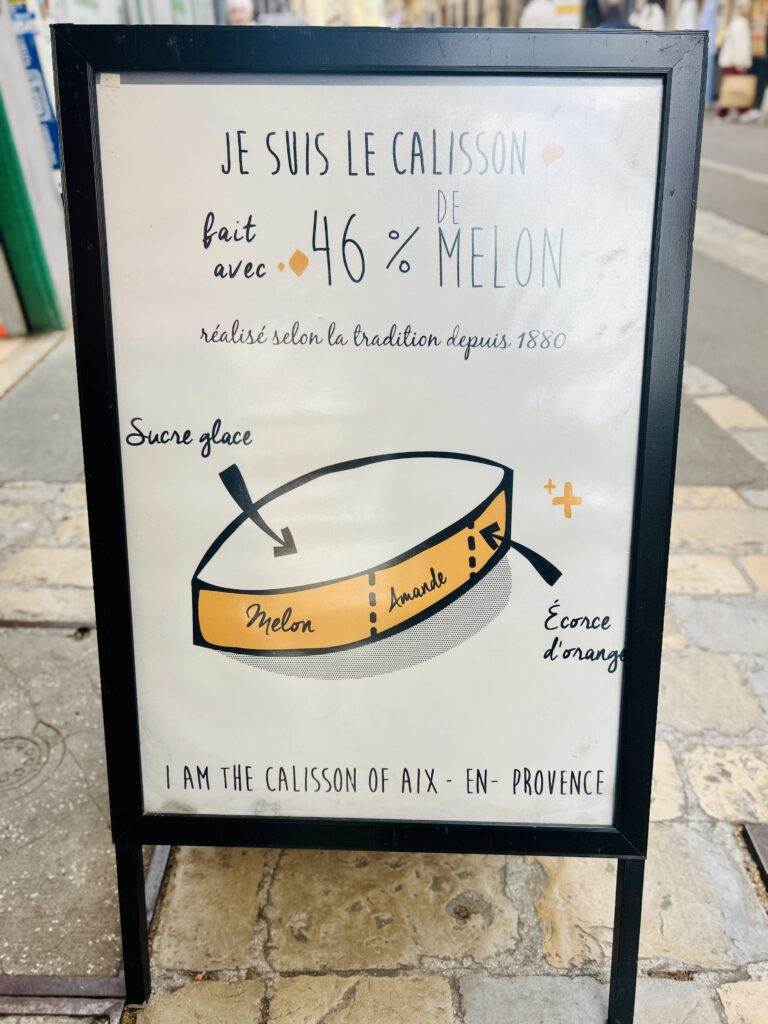 JE SUIS LE CALISSON
fait avec 46 % DE MELON
réalisé selon la tradition depuis 1880
Sucre glace
Melon
Amande
Écorce
d'orange
I AM THE CALISSON OF AIX - EN- PROVENCE